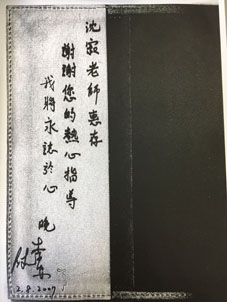 沈寂老師惠存
謝謝您的熱心指導
我將永誌於心
晚
12.8.2007